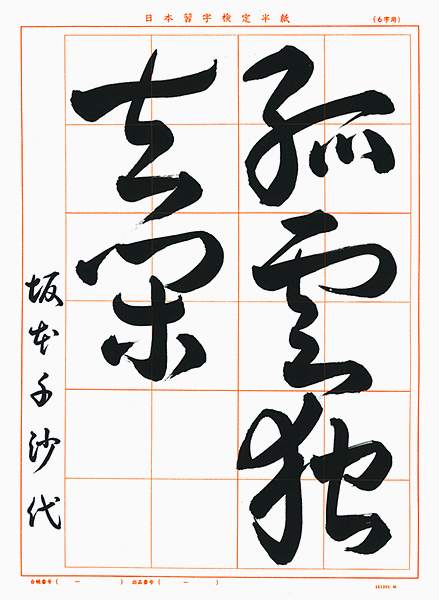 日本習字検定半紙
(6字用)
孤雲独
去閑
坂本千沙代
台帳番号( ー ) 出品番号( ー )